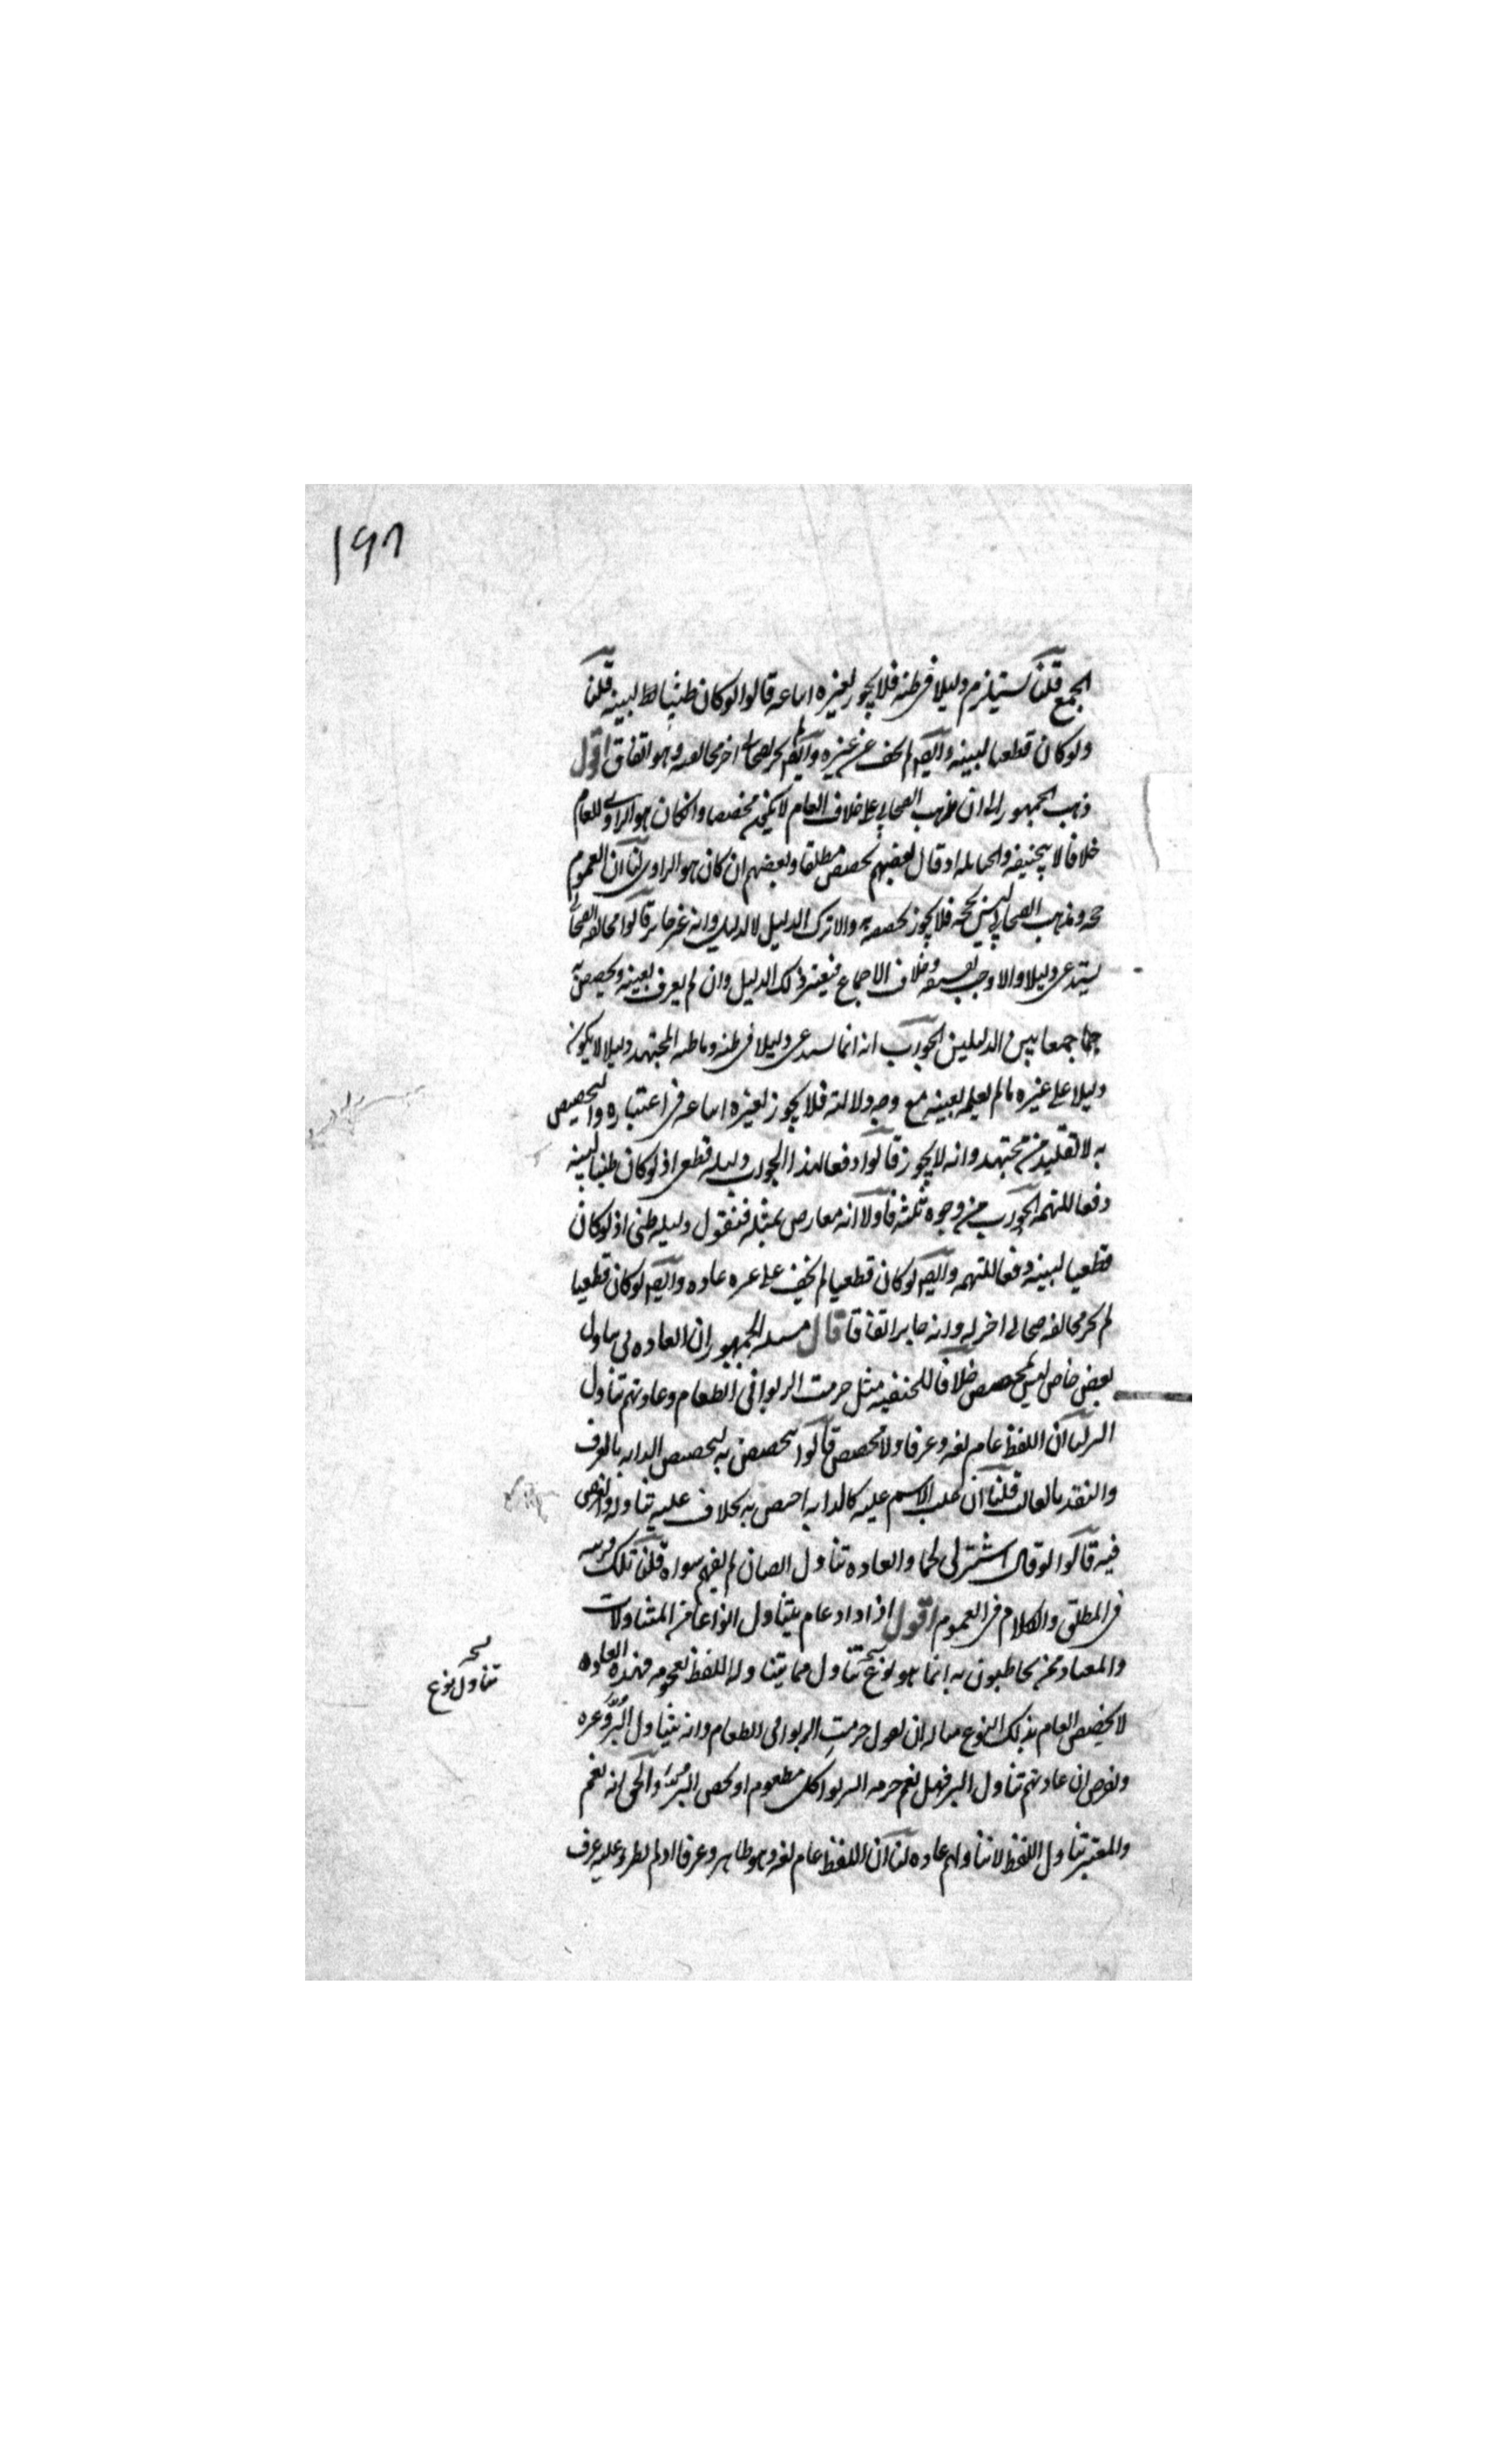 ١٩٨
الجمع قلنا يستلزم دليلا فى ظنه فلا يجوز لغيره اتباعه قالوا لو كان ظنيا لبينه قلنا
ولو كان قطعيا لبينه وايضا لم يخف عن غيره وايضا لم يجز لصحابى اخر مخالفته وهو اتفاق اقول
ذهب الجمهور الى ان مذهب الصحابى على خلاف العام لا يكون مخصصا وان كان هو الراوى للعام
خلافا لابى حنيفه والحنابله اذ قال بعضهم يخصص مطلقا وبعضهم ان كان هو الراوى لنا ان العموم
حجه ومذهب الصحابى ليس بحجه فلا يجوز تخصيصه به والا ترك الدليل لا لدليل وانه غير جايز قالوا مخالفه الصحابى
يستدعى دليلا والا وجب تفسيقه وهو خلاف الاجماع فيعتبر ذلك الدليل وان لم يعرف بعينه ويخصص به
جمعا بين الدليلين الجواب انه انما يستدعى دليلا فى ظنه وما ظنه المجتهد دليلا لا يكون
دليلا على غيره ما لم يعلمه بعينه مع وجه دلالته فلا يجوز لغيره اتباعه فى اعتباره والتخصيص
به لانه تقليد من مجتهد وانه لا يجوز قالوا دفعا لهذا الجواب دليله قطعى اذ لو كان ظنيا لبينه
دفعا للتهمه الجواب من وجوه ثلثه فاولا انه معارض بمثله فنقول دليله ظنى اذ لو كان
قطعيا لبينه دفعا للتهمه وايضا لو كان قطعيا لم يخف على غيره عاده وايضا لو كان قطعيا
لم يجز مخالفه صحابى اخر له وانه جايز اتفاقا قال مسله الجمهور ان العاده فى تناول
بعض خاص ليس بمخصص خلافا للحنفيه مثل حرمت الربوا فى الطعام وعادتهم تناول
البر لنا ان اللفظ عام لغه وعرفا ولا مخصص قالوا يتخصص به كتخصيص الدابه بالعرف
والنقد بالغالب قلنا ان غلب الاسم عليه كالدابه اختص به بخلاف غلبه تناوله والفرض
فيه قالوا لو قال اشتر لى لحما والعاده تناول الضان لم يفهم سواه قلنا تلك قرينه
فى المطلق والكلام فى العموم اقول اذا اراد عام يتناول انواعا من المتناولات
والمعتاد من يخاطبون به انما هو نوع تناول مما يتناوله اللفظ بعمومه فهذه العاده
لا يخصص العام بذلك النوع مثاله ان يقول حرمت الربوا فى الطعام وانه يتناول البر وغيره
ونفرض ان عادتهم تناول البر فهل نعم حرمه الربوا كل مطعوم او يخص البر والحق انه نعم
والمعتبر تناول اللفظ لا تناولهم عاده لنا ان اللفظ عام لغه وهو ظاهر وعرفا اذ لم يطرو عليه عرف
تناول نوع